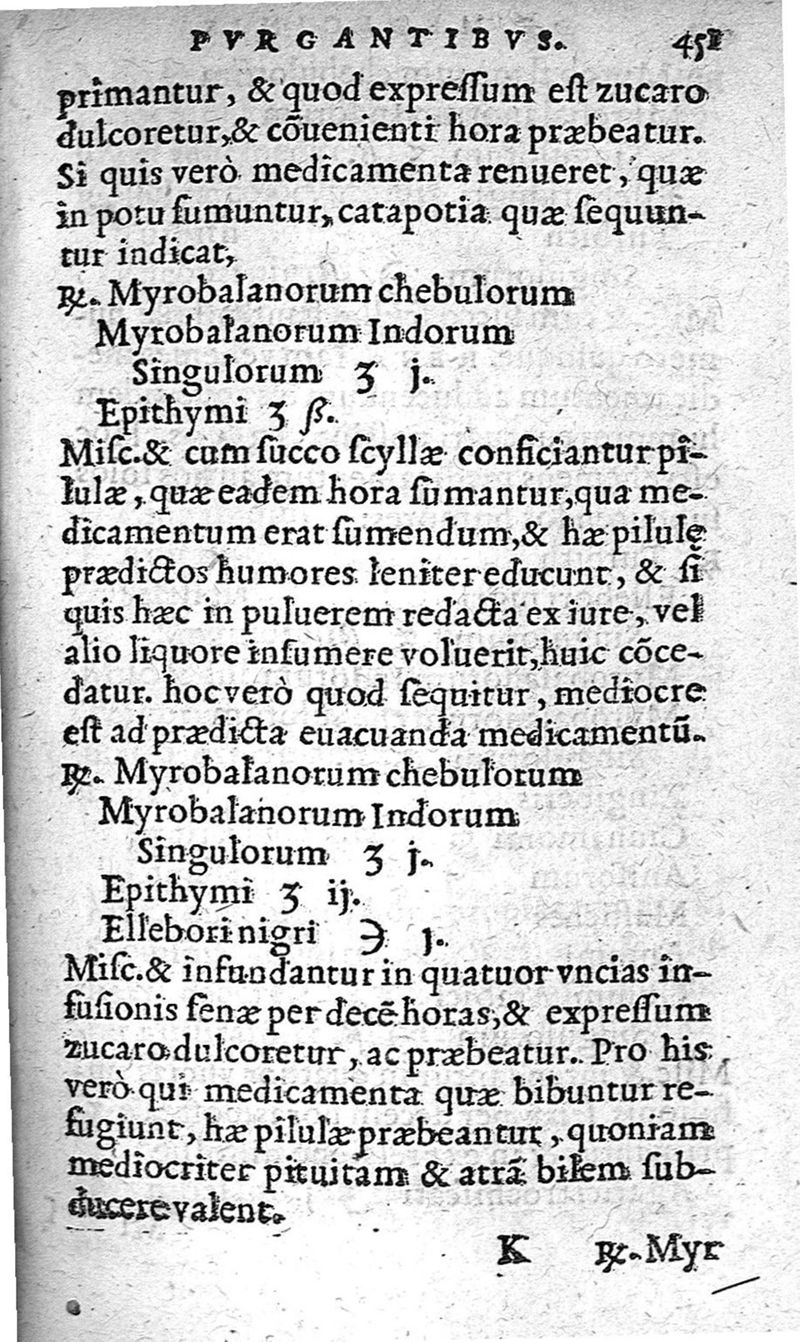 PVRGANTIBVS. 451
primantur, & quod expreſſum eſt zucaro
dulcoretur, & cõuenienti hora præbeatur.
Si quis verò medicamenta renueret, quæ
in potu ſumuntur, catapotia quæ ſequun-
tur indicat,
℞. Myrobalanorum chebulorum
Myrobalanorum Indorum
Singulorum ʒ j.
Epithymi ʒ ß.
Miſc. & cum ſucco ſcyllæ conficiantur pi-
lulæ, quæ eadem hora ſumantur, qua me-
dicamentum erat ſumendum, & hæ pilulę
prædictos humores leniter educunt, & ſi
quis hæc in puluerem redacta ex iure, vel
alio liquore inſumere voluerit, huic cõce-
datur. hoc verò quod ſequitur, mediocre
eſt ad prædicta euacuanda medicamentũ.
℞. Myrobalanorum chebulorum
Myrobalanorum Indorum
Singulorum ʒ j.
Epithymi ʒ ij.
Ellebori nigri ℈ j.
Miſc. & infundantur in quatuor vncias in-
fuſionis ſenæ per decẽ horas, & expreſſum
zucaro dulcoretur, ac præbeatur. Pro his
verò qui medicamenta quæ bibuntur re-
fugiunt, hæ pilulæ præbeantur, quoniam
mediocriter pituitam & atrã bilem ſub-
ducere valent.
K ℞. Myr